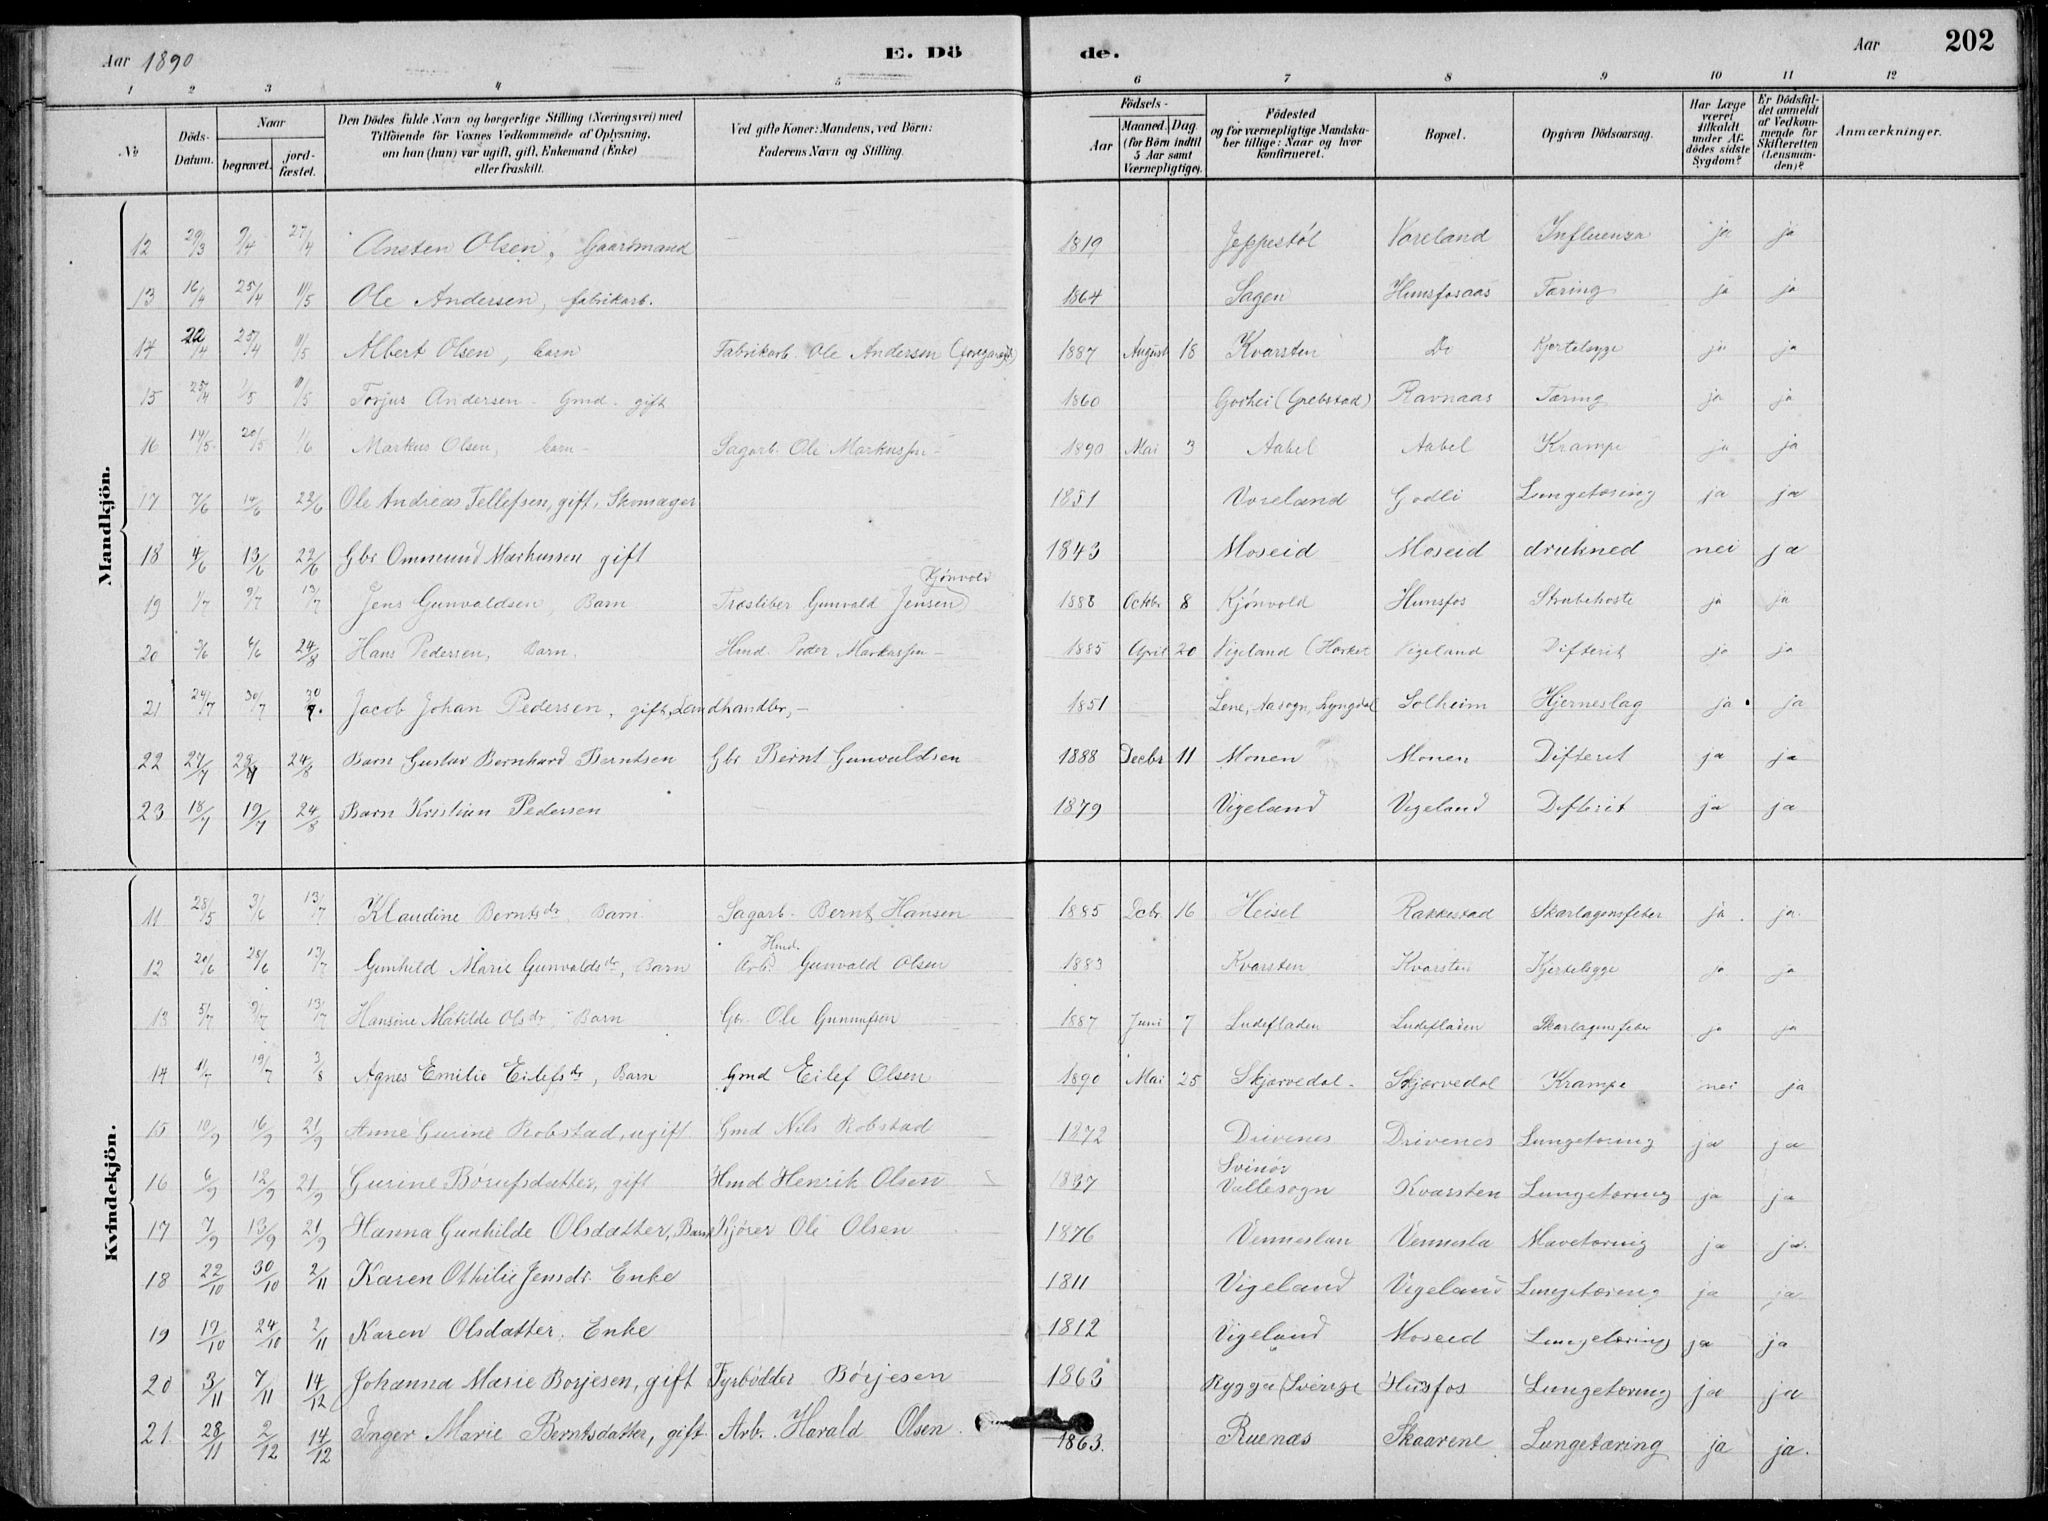 Aar 1890 E. Dö de. Aar 202
1 2 3 4 5 6 7 8 9 10 11 12
No
Döds-Datum.
Naar begravet. jordfæstet.
Den Dödes fulde Navn og borgerlige Stilling (Næringsvei) med Tilföiende for Voxnes Vedkommende af Oplysning, om han (hun) var ugift, gift, Enkemand (Enke) eller fraskilt.
Ved gifte Koner: Mandens, ved Börn: Faderens Navn og Stilling.
Födsels-
Aar
Maaned. Dag. (for Börn indtil 5 Aar samt Værnepligtige).
Födested og for værnepligtige Mandskaber tillige: Naar og hvor konfirmeret.
Bopæl.
Opgiven Dödsaarsag.
Har Læge været tilkaldt under Afdödes sidste Sygdom?
Er Dödsfaldet anmeldt af Vedkommende for Skifteretten (Lensmanden)?
Anmærkninger.
Mandkjön.
12 29/3 9/4 27/4 Ansten Olsen, Gaardmand — 1819 Jeppestøl Voreland Influenza ja ja
13 16/4 25/4 11/5 Ole Andersen, fabrikarb. 1864 Sagen Hunsfosaas Tæring ja ja
14 22/4 25/4 11/5 Albert Olsen, barn Fabrikarb. Ole Andersen 1887 August 18 Kvarsten Do Kjertelsyge ja ja
15 25/4 1/5 11/5 Torjus Andersen - Gmd - gift 1860 (Grebstad) Ravnaas Tæring ja ja
16 14/5 20/5 1/6 Markus Olsen, barn - Sagarb. Ole Markussen 1890 Mai 3 Aabel Aabel Krampe ja ja
17 7/6 14/6 22/6 Ole Andreas Tellefsen, gift, Skomager 1851 Voreland Godli Lungetæring ja ja
18 4/6 13/6 22/6 Gbr Ommund Markussen gift 1843 Moseid Moseid drukned nei ja
19 1/7 9/7 13/7 Jens Gunvaldsen, Barn Træsliber Gunvald Jensen Kjønvold 1888 Octbr 8 Kjønvold Hunsfos Strubehoste ja ja
20 3/6 6/6 24/8 Hans Pedersen, Barn. Hmd. Peder Markussen - 1885 April 20 Vigeland Vigeland Difterit ja ja
21 24/7 30/7 30/7. Jacob Johan Pedersen, gift, Landhandler, — 1851 Lene, Aasogn, Lyngdal Solheim Hjerneslag ja ja
22 27/7 28/7 24/8 Barn Gustav Bernhard Berntsen Gbr Bernt Gunvaldsen 1888 Decbr 11 Monen Monen Difterit ja ja
23 18/7 19/7 24/8 Barn Kristian Pedersen 1879 Vigeland Vigeland Difterit ja ja
Kvindekjön.
11 28/5 3/6 13/7 Klaudine Berntsdr, Barn Sagarb. Bernt Hansen 1885 Dcbr. 16 Heisel Rakkestad Skarlagensfeber ja. ja.
12 20/6 28/6 13/7 Gunhild Marie Gunvaldsdr, Barn Hmd. Arb. Gunvald Olsen 1883 Kvarsten Kvarsten Kjertelsyge ja ja
13 5/7 9/7 13/7 Hansine Matilde Olsdr - Barn Gbr. Ole Gunnufsen 1887 Juni 7 Ludefladen Ludefladen Skarlagensfeber ja ja
14 11/7 19/7 3/8 Agnes Emilie Eilefsdr, Barn Gmd Eilef Olsen 1890 Mai 25 Skjærvedal - Skjærvedal Krampe nei ja
15 10/9 16/9 21/9 Anne Gurine Robstad, ugift Gmd Nils Robstad 1872 Drivenes Drivenes Lungetæring ja ja
16 6/9 12/9 21/9 Gurine Børufsdatter, gift Hmd Henrik Olsen 1837 Svinør Vallesogn Kvarsten Lungetæring ja ja
17 7/9 13/9 21/9 Hanna Gunhilde Olsdatter, Barn Kjører Ole Olsen 1876 Venneslan Vennesla Mavetæring ja ja.
18 22/10 30/10 2/11 Karen Othilie Jensdr. Enke 1811 Vigeland Vigeland Lungetæring ja ja
19 19/10 24/10 2/11 Karen Olsdatter. Enke 1812 Vigeland Moseid Lungetæring ja ja
20 3/11 7/11 14/12 Johanna Marie Borjesen, gift Fyrbødder Børjesen 1863 Rygga (Sverige Husfos Lungetæring ja ja
21. 28/11 2/12 14/12 Inger Marie Berntsdatter, gift Arb. Harald Olsen. 1863. Ruenæs Skaarene Lungetæring ja ja.